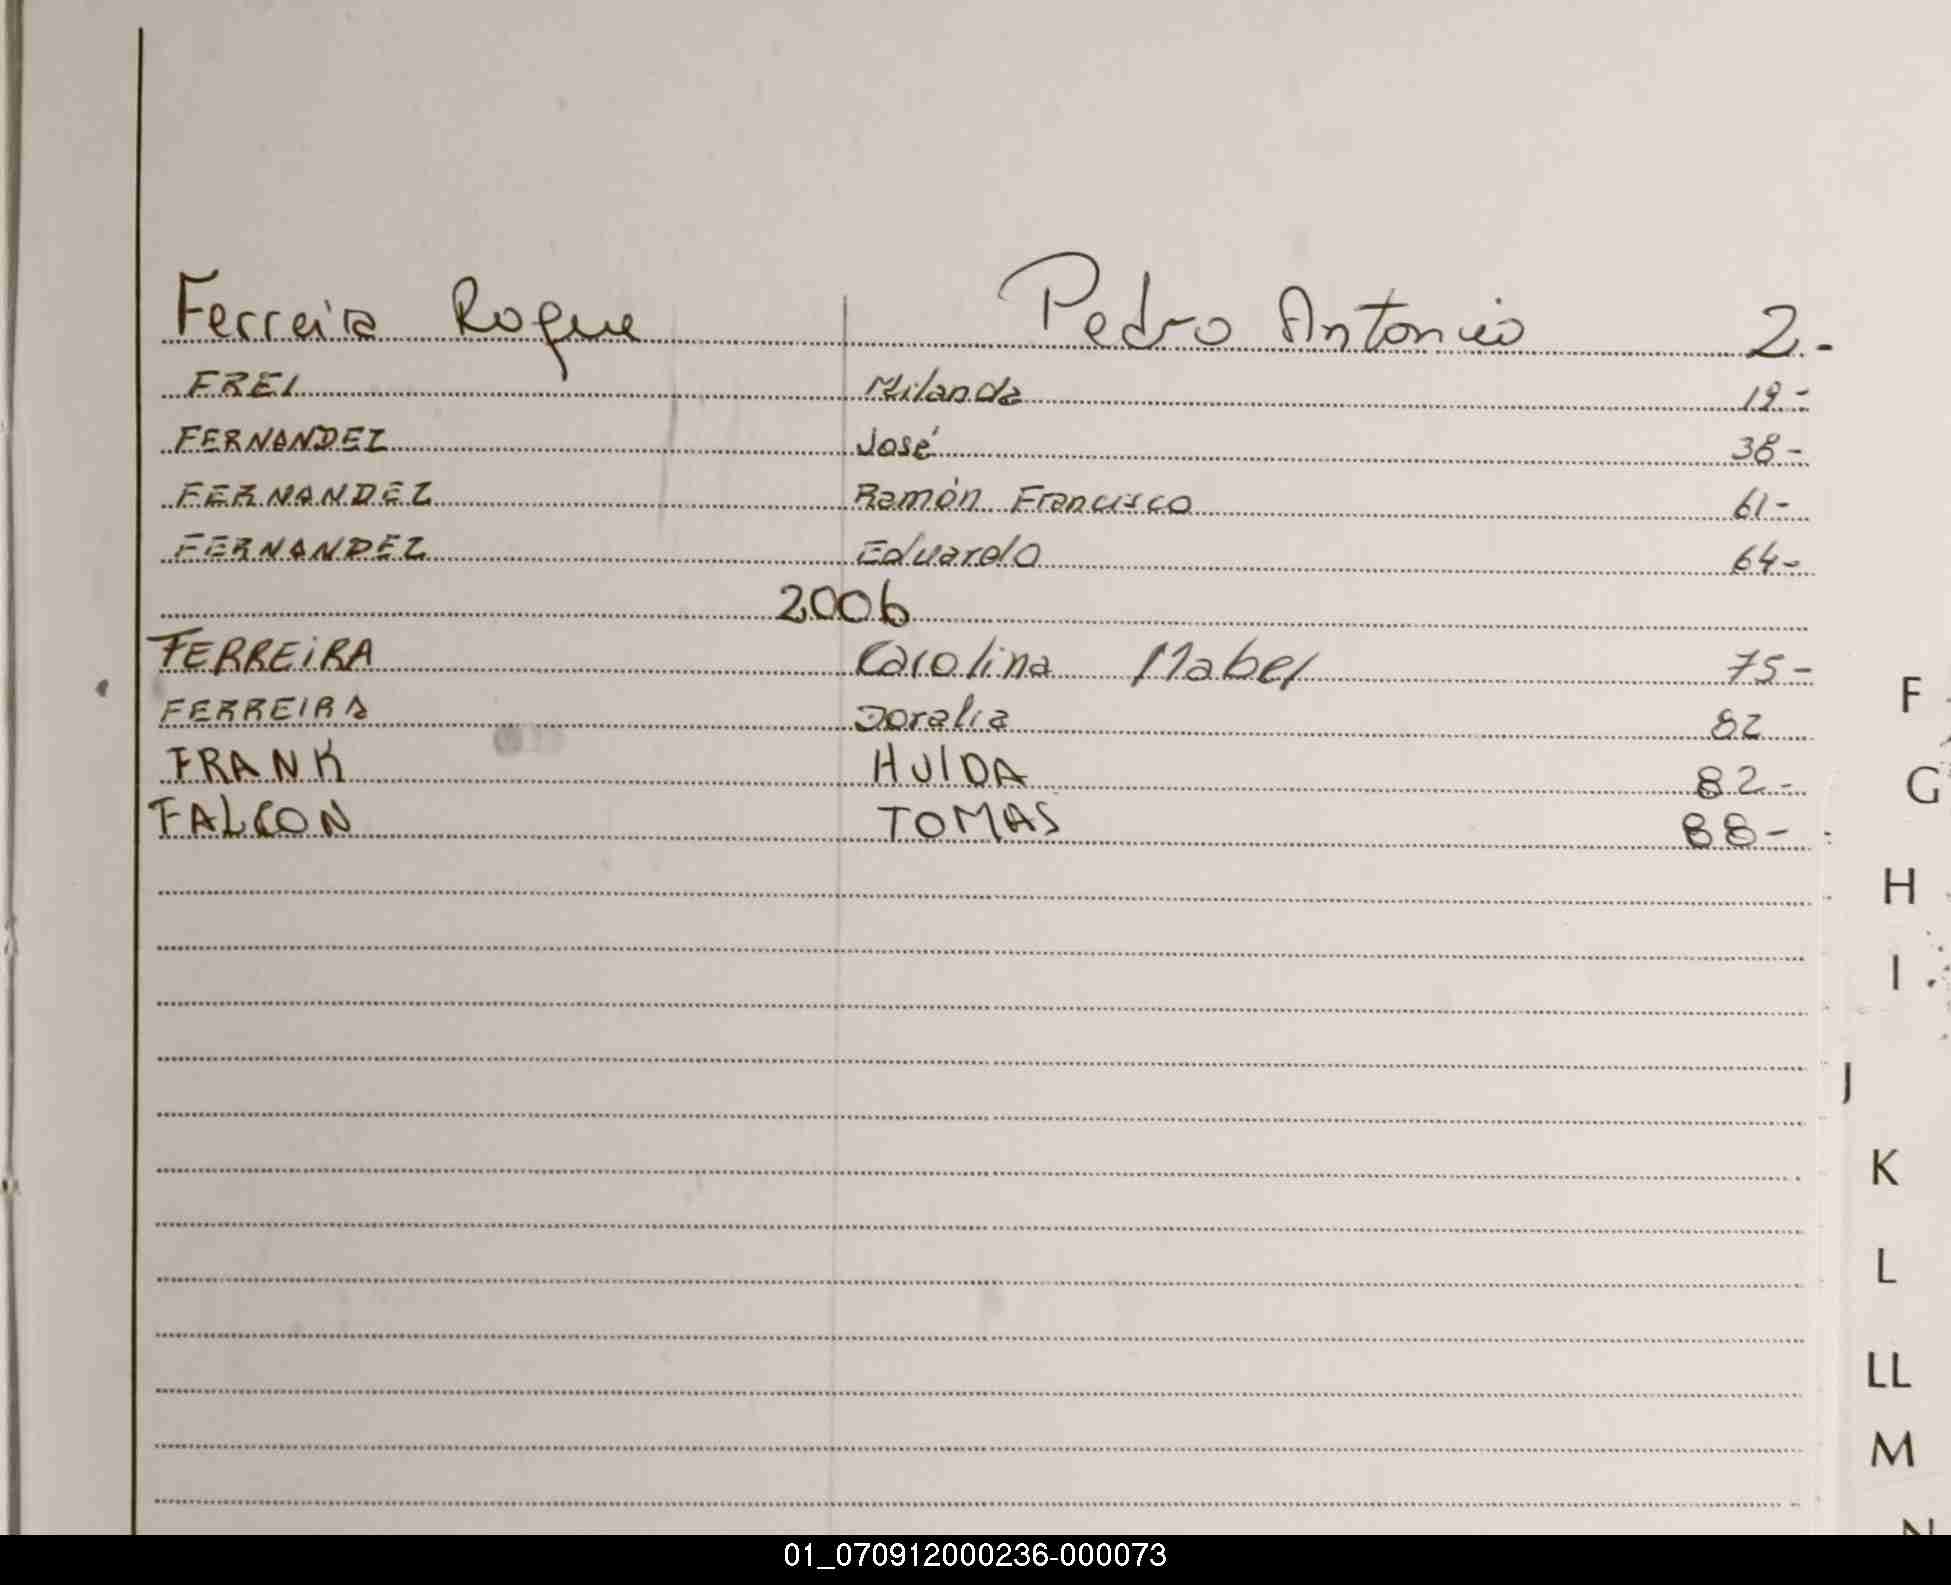 Ferreira Roque Pedro Antonio 2.-
FREI Milanda 19-
FERNANDEZ José 38-
FERNANDEZ Ramón Francisco 61-
FERNANDEZ Eduardo 64-
2006
FERREIRA Carolina Mabel 75-
FERREIRA Doralia 82
FRANK HULDA 82-
FALCON TOMAS 88-
F
G
H
I
J
K
L
LL
M
N
01_070912000236-000073